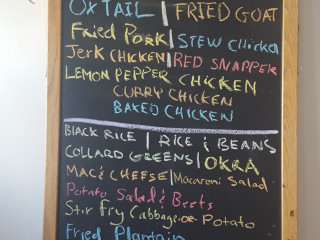 OXTAIL | FRIED GOAT
Fried Pork | STEW Chicken
Jerk CHICKEN | RED SNAPPER
LEMON PEPPER CHICKEN
CURRY CHICKEN
BAKED CHICKEN
BLACK RICE | RICE & BEANS
COLLARD GREENS | OKRA
MAC & CHEESE | Macaroni Salad
Potato Salad & Beets
Stir Fry Cabbage or Potato
Fried Plantain